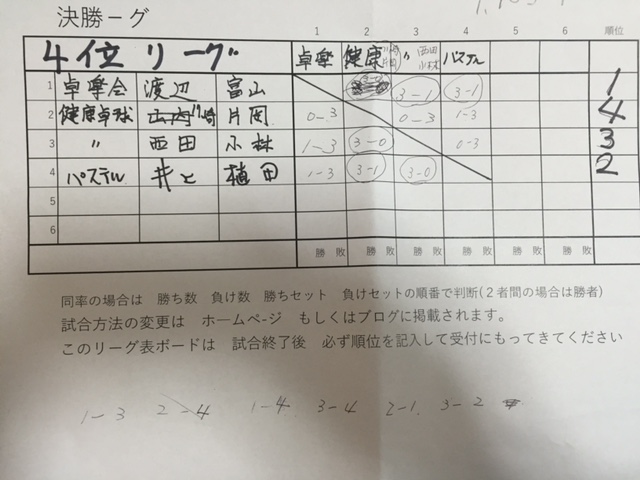 決勝－グ
1 2 3 4 5 6 順位
4位リーグ 卓楽 健康 川崎 片岡 〃 西田 小林 パステル
1 卓楽会 渡辺 富山 3-1 3-1 1
2 健康卓球 川崎 片岡 0-3 0-3 0-3 4
3 〃 西田 小林 1-3 3-0 1-3 3
4 パステル 井上 植田 1-3 3-1 3-0 2
5
6
勝 敗 勝 敗 勝 敗 勝 敗 勝 敗 勝 敗
同率の場合は 勝ち数 負け数 勝ちセット 負けセットの順番で判断(2者間の場合は勝者)
試合方法の変更は ホームページ もしくはブログに掲載されます。
このリーグ表ボードは 試合終了後 必ず順位を記入して受付にもってきてください
1-3 2-4 1-4 3-4 2-1 3-2